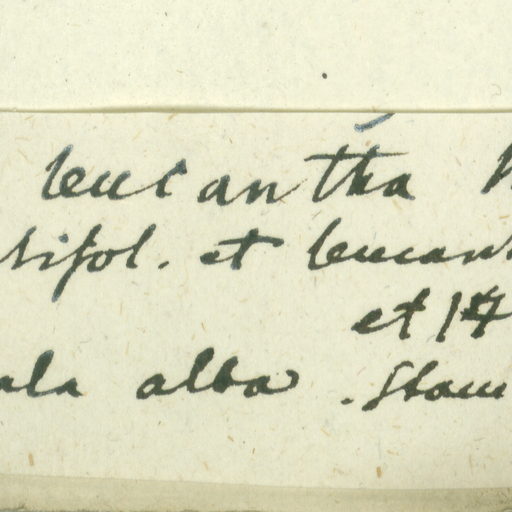 leucantha
sifol. et leucant
et 17
ala alba. Stam